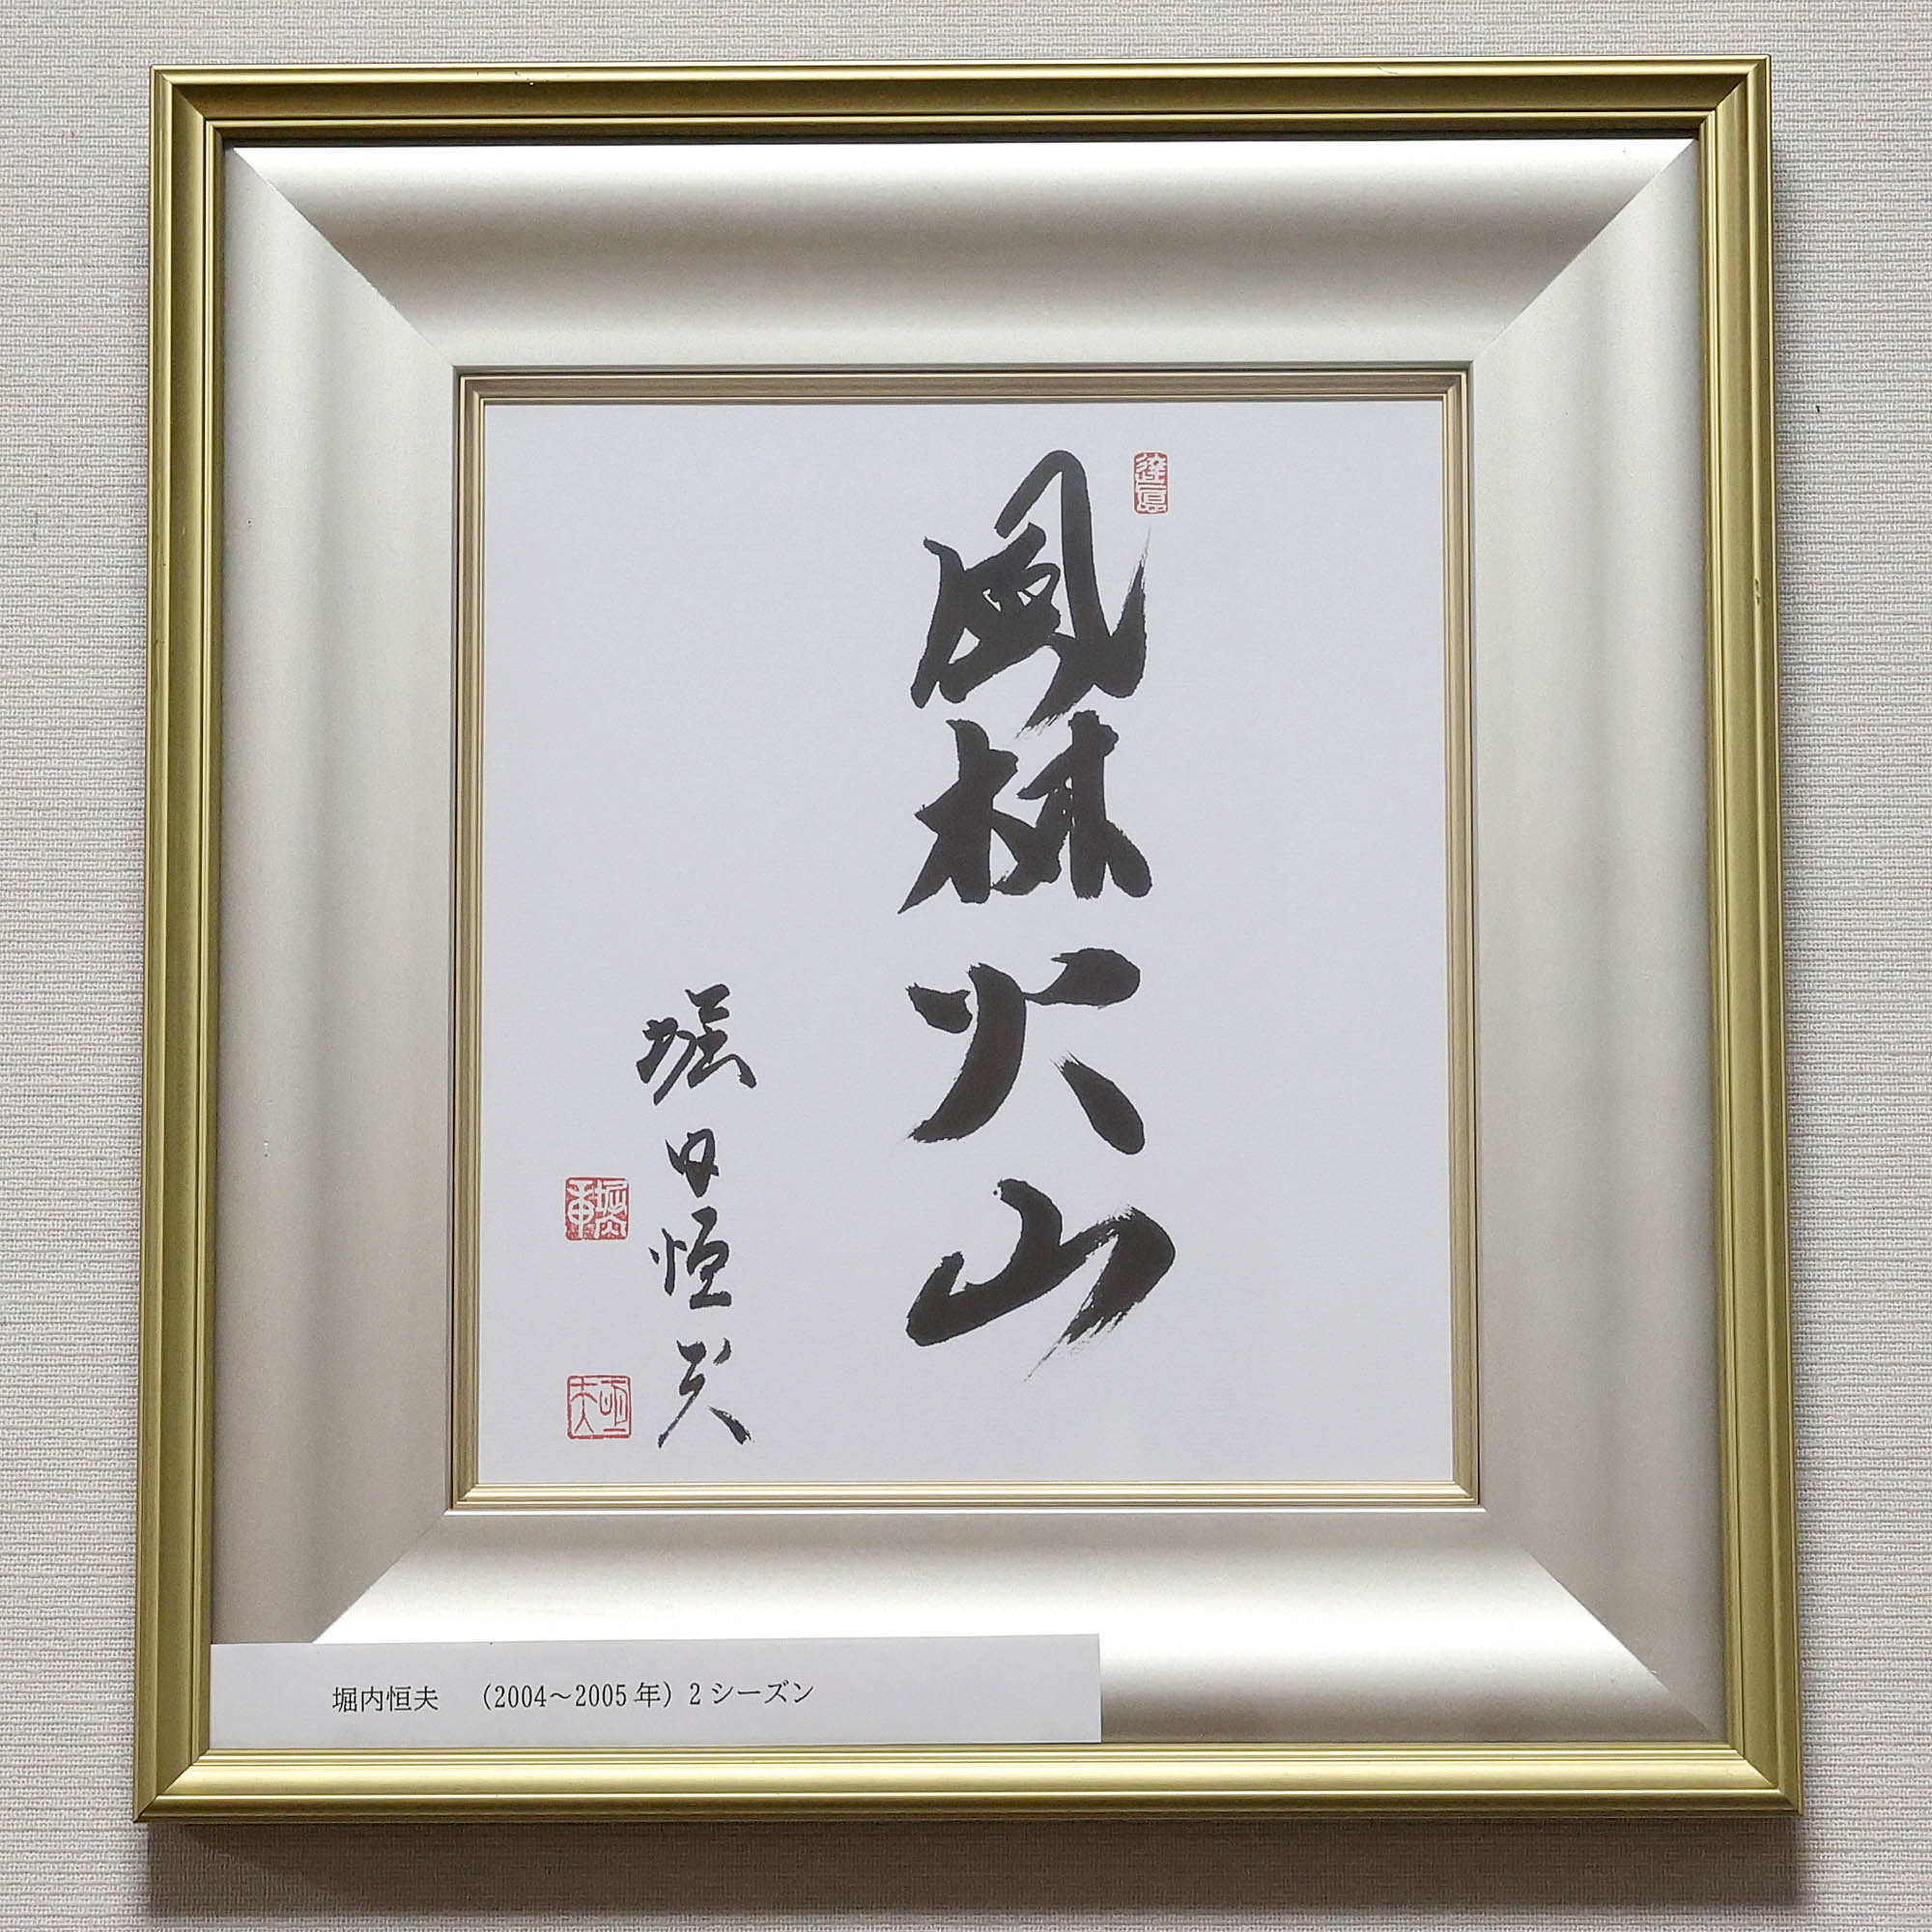 風林火山
堀内恒夫
堀内恒夫 （2004～2005年）2シーズン